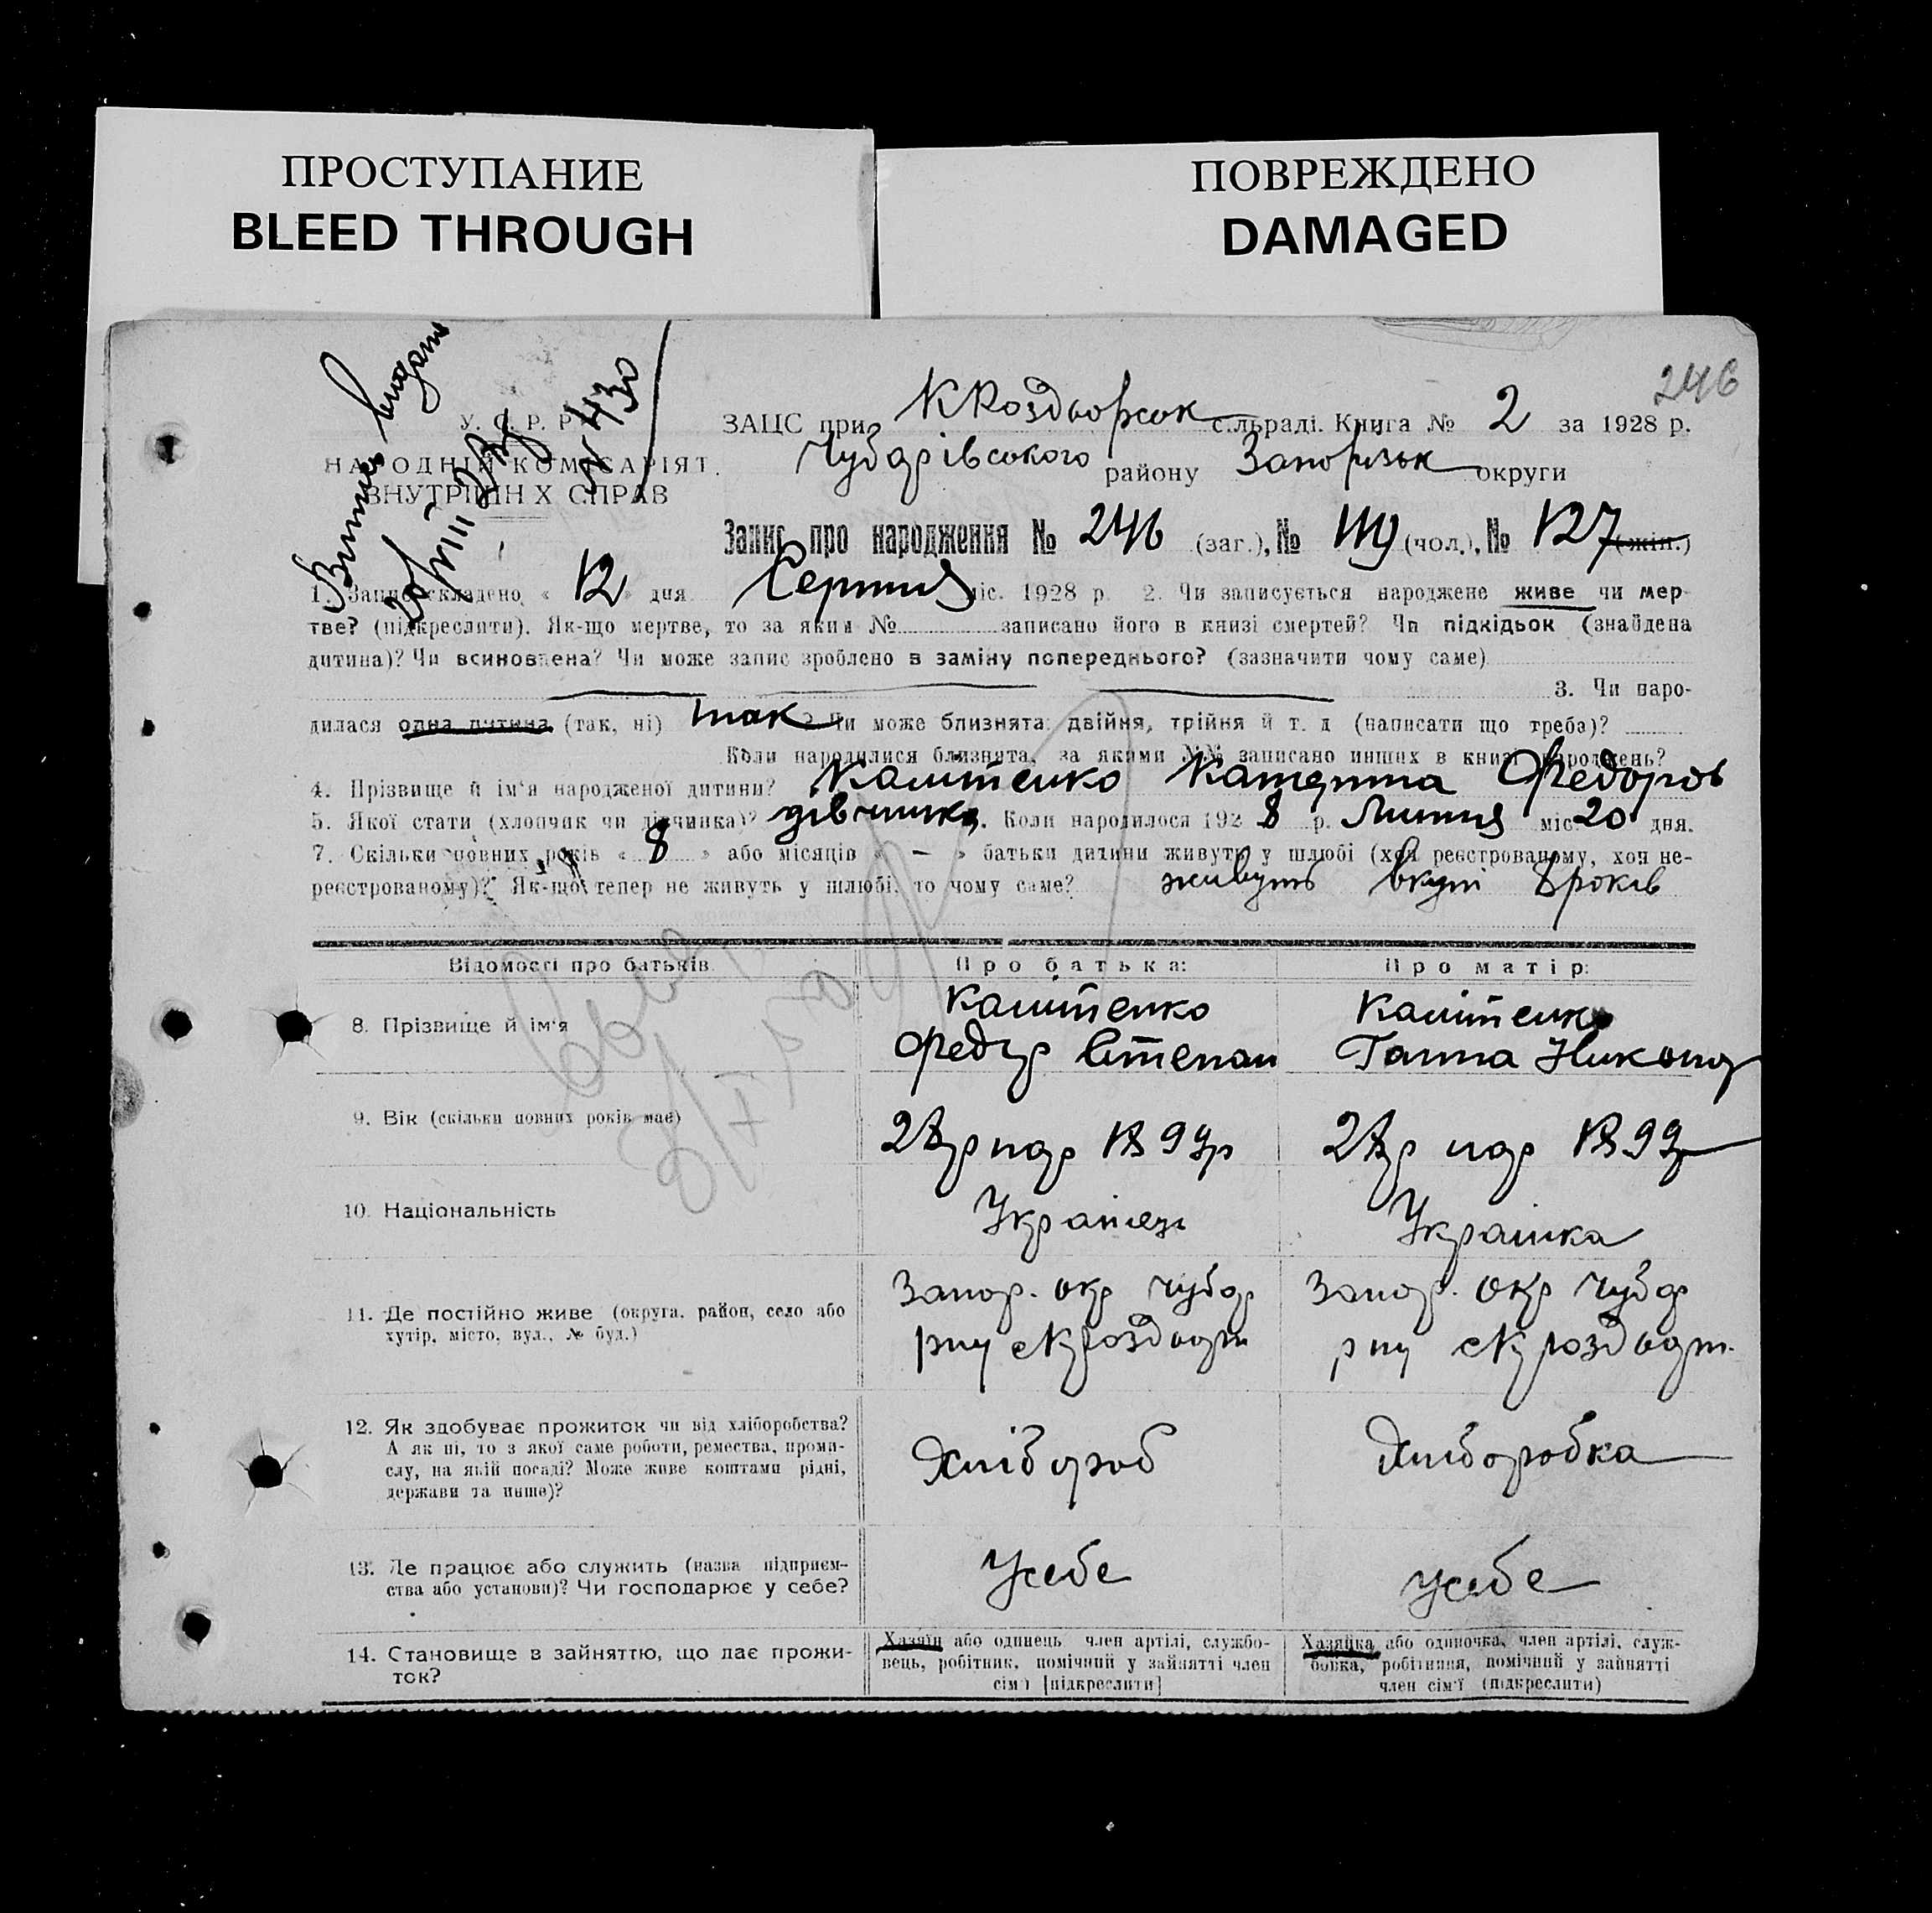 ПРОСТУПАНИЕ
BLEED THROUGH
ПОВРЕЖДЕНО
DAMAGED
246
Витяг видано
№ 430
У. С. Р. Р.
НАРОДНІЙ КОМІСАРІЯТ
ВНУТРІШНІХ СПРАВ
ЗАЦС при К Роздорськ сільраді. Книга № 2 за 1928 р.
Чубарівського району Запорізьк округи
Запис про народження № 246 (заг.), № 119 (чол.), № 127 (жін.)
1. Запис складено « 12 » дня Серпня міс. 1928 р. 2. Чи записується народжене живе чи мер-
тве? (підкреслити). Як-що мертве, то за яким № записано його в книзі смертей? Чи підкідьок (знайдена
дитина)? Чи всиновлена? Чи може запис зроблено в заміну попереднього? (зазначити чому саме)
3. Чи наро-
дилася одна дитина (так, ні) так ? Чи може близнята: двійня, трійня й т. д (написати що треба)?
Коли народилися близнята, за якими №№ записано инших в книзі народжень?
4. Прізвище й ім'я народженої дитини? Каштенко Катерина Федоров
5. Якої стати (хлопчик чи дівчинка)? дівчинка. Коли народилося 1928 р. Липня міс. 20 дня.
7. Скільки повних років « 8 » або місяців « — » батьки дитини живуть у шлюбі (хоч реєстрованому, хоч не-
реєстрованому)? Як-що тепер не живуть у шлюбі, то чому саме? живуть вкупі 8 років
Відомості про батьків. Про батька: Про матір:
8. Прізвище й ім'я
Каштенко
Федір Степан
Каштенко
Ганна Никонор
9. Вік (скільки повних років має)
нар 1899р
нар 1899р
10. Національність
Українець
Українка
11. Де постійно живе (округа, район, село або
хутір, місто, вул., № буд.)
Запор. окр Чубар
рну
Запор. окр Чубар
рну
12. Як здобуває прожиток чи від хліборобства?
А як ні, то з якої саме роботи, ремества, проми-
слу, на якій посаді? Може живе коштами рідні,
держави та инше)?
Хлібороб
Хліборобка
13. Де працює або служить (назва підприєм-
ства або установи)? Чи господарює у себе?
У себе
у себе
14. Становище в зайняттю, що дає прожи-
ток?
Хазяїн або одинець член артілі, службо-
вець, робітник, помічний у зайнятті член
сім'ї [підкреслити]
Хазяйка або одиночка, член артілі, служ-
бовка, робітниця, помічний у зайнятті
член сім'ї (підкреслити)